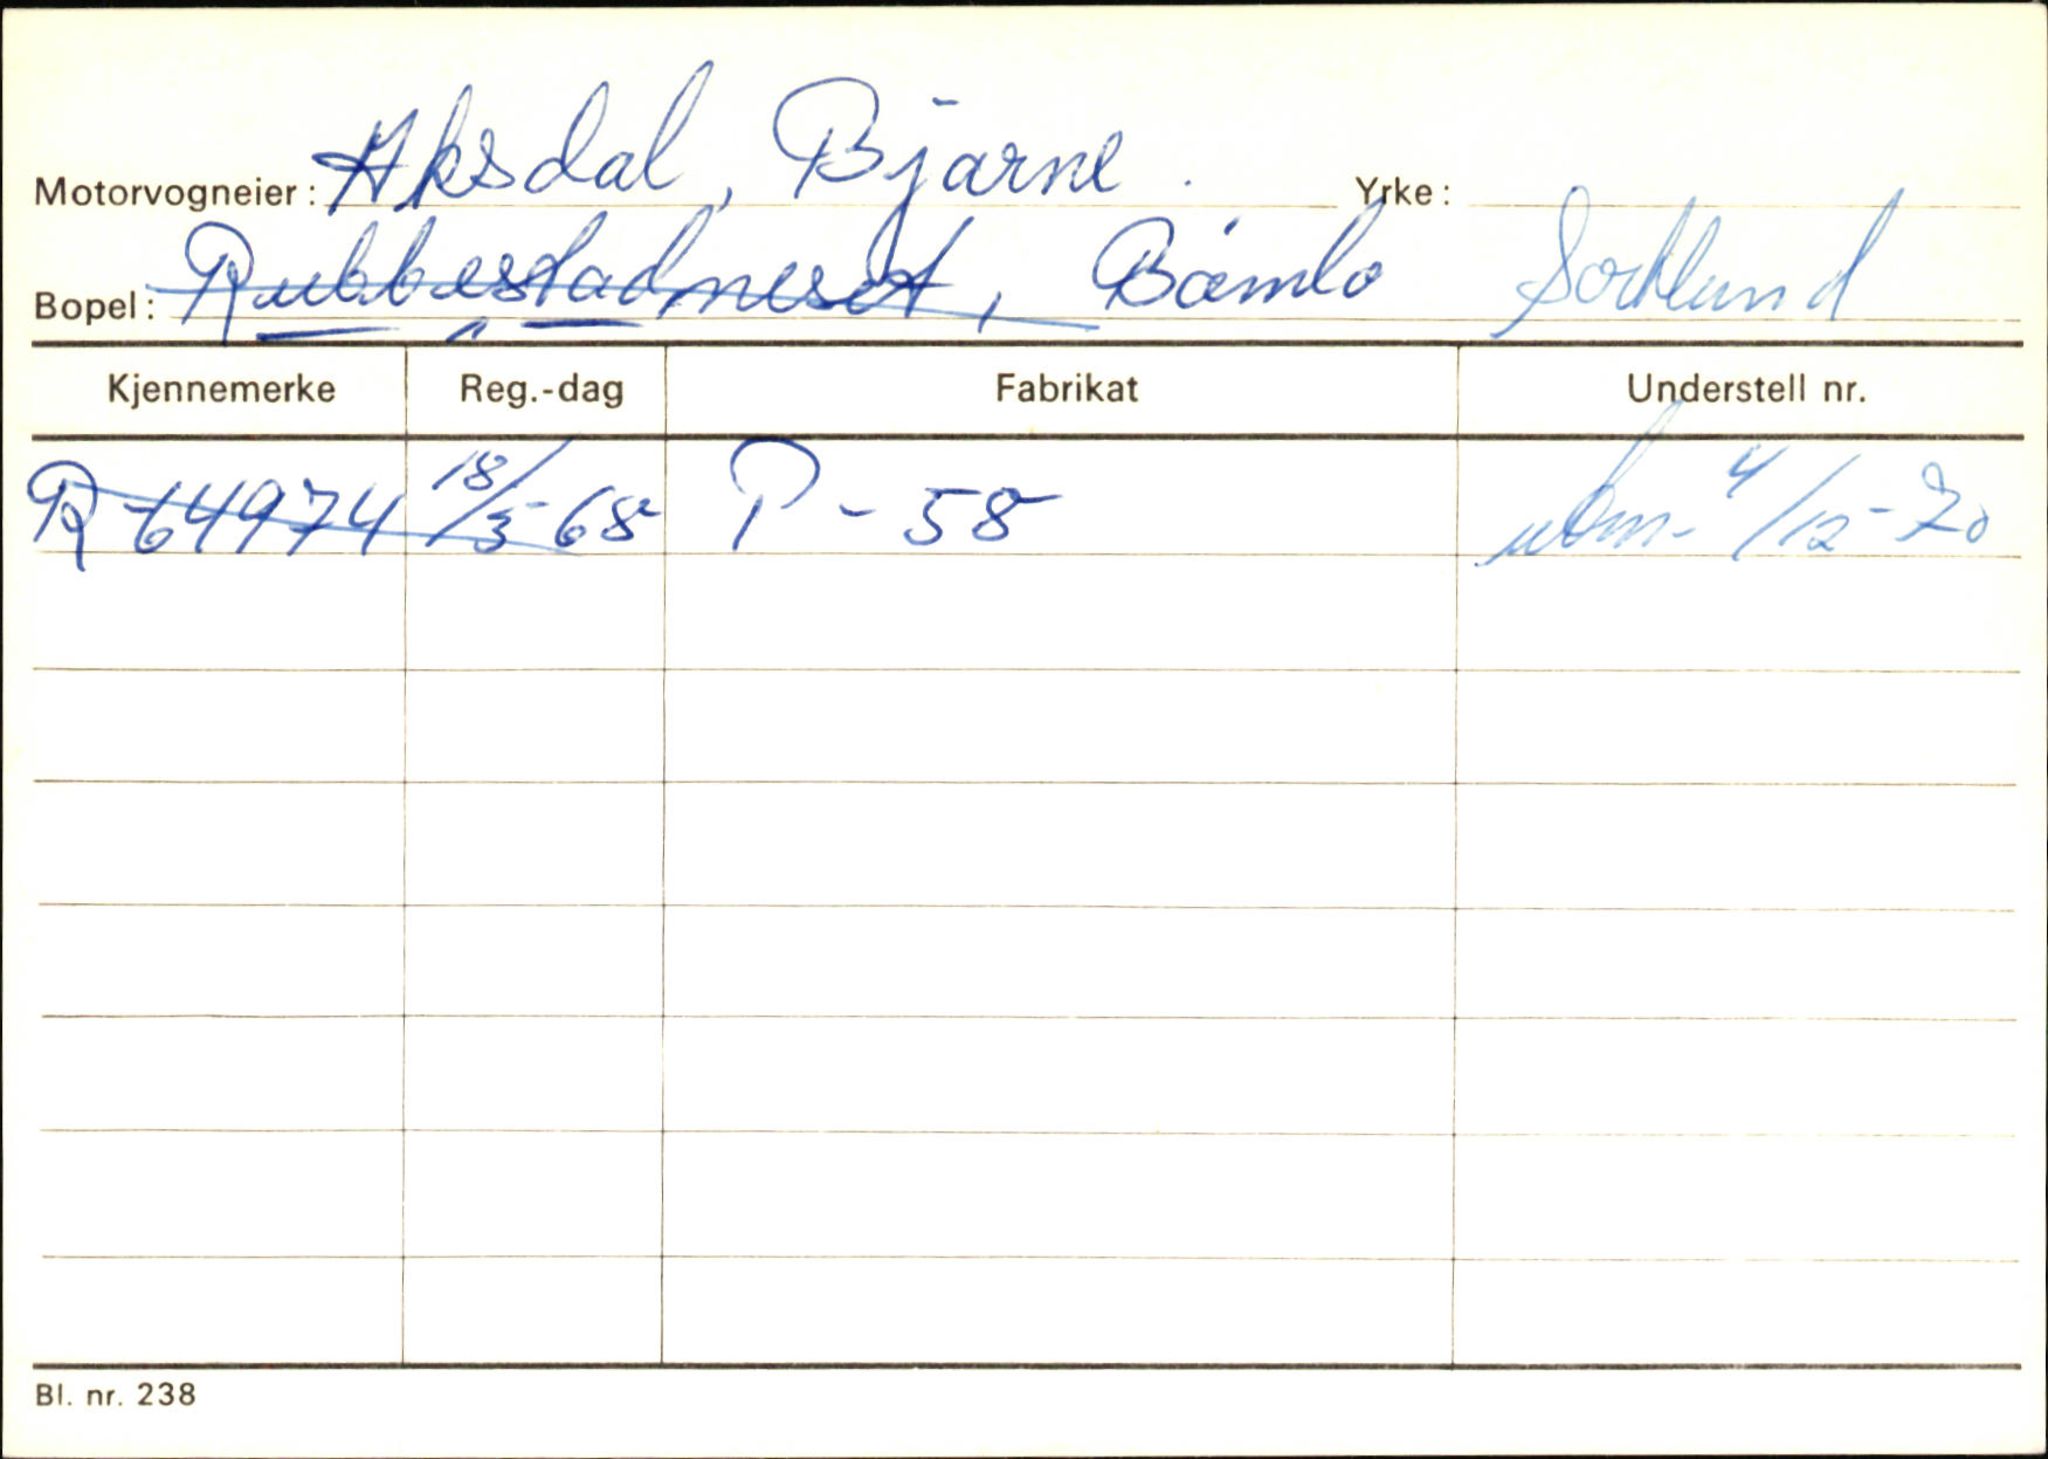 Motorvogneier: Aksdal, Bjarne. Yrke:
Bopel: Rubbestadneset, Bømlo Sortland
Kjennemerke Reg.-dag Fabrikat Understell nr.
R-64974 18/5-68 P-58 4/12-70
Bl. nr. 238